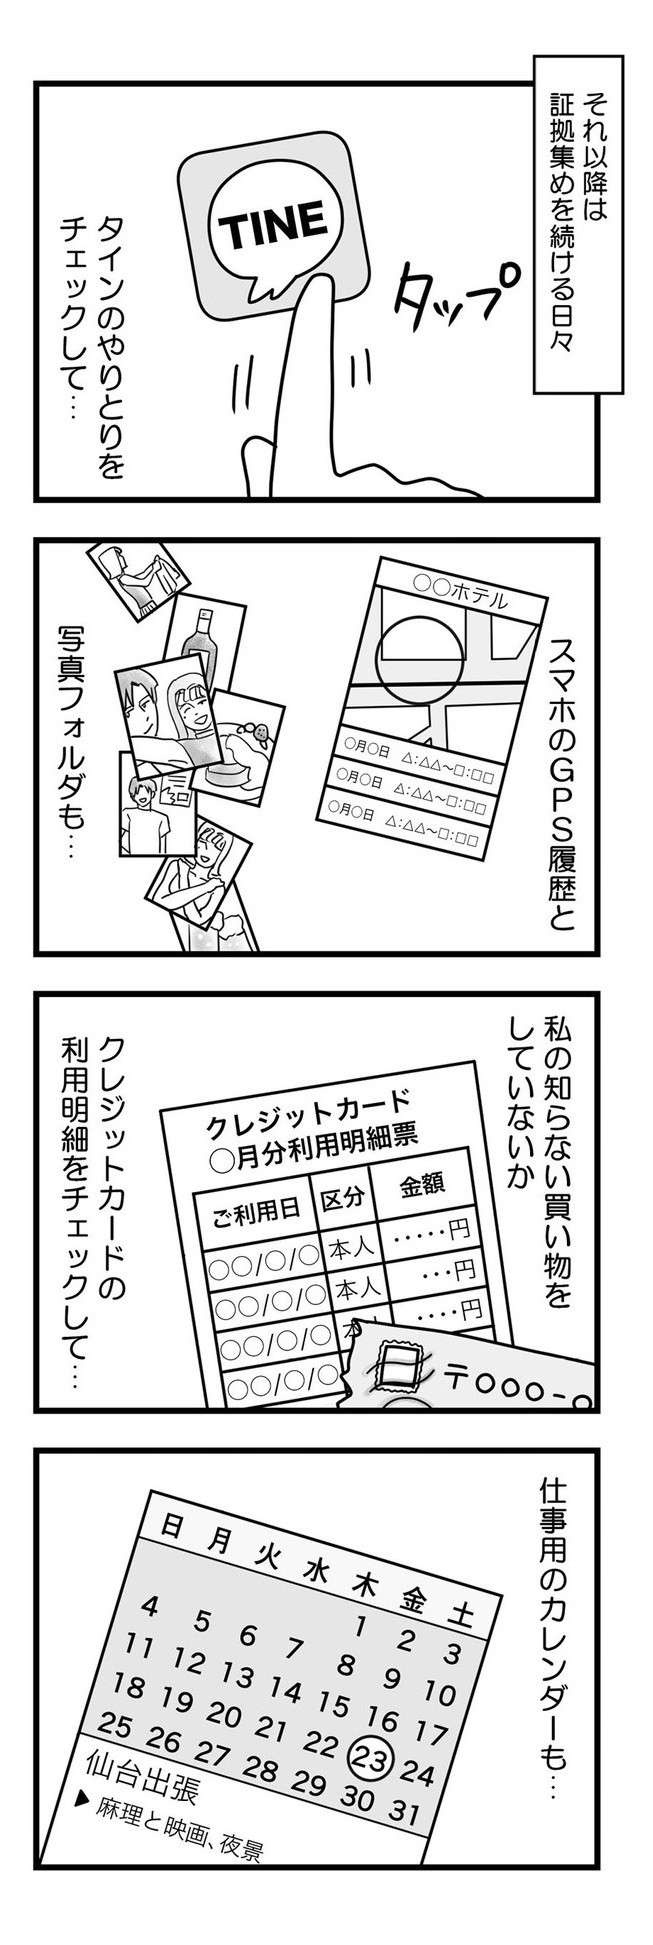 それ以降は
証拠集めを続ける日々
TINE
タップ
タインのやりとりを
チェックして…
スマホのGPS履歴と
○○ホテル
○月○日 △:△△〜□:□□
○月○日 △:△△〜□:□□
○月○日 △:△△〜□:□□
写真フォルダも…
私の知らない買い物を
していないか
クレジットカード
○月分利用明細票
ご利用日 区分 金額
○○/○/○ 本人 ・・・・・円
○○/○/○ 本人 ・・・円
○○/○/○ 本人 ・・・・円
○○/○/○
〒○○○-○
クレジットカードの
利用明細をチェックして…
仕事用のカレンダーも…
日 月 火 水 木 金 土
1 2 3
4 5 6 7 8 9 10
11 12 13 14 15 16 17
18 19 20 21 22 23 24
25 26 27 28 29 30 31
仙台出張
▶ 麻理と映画、夜景